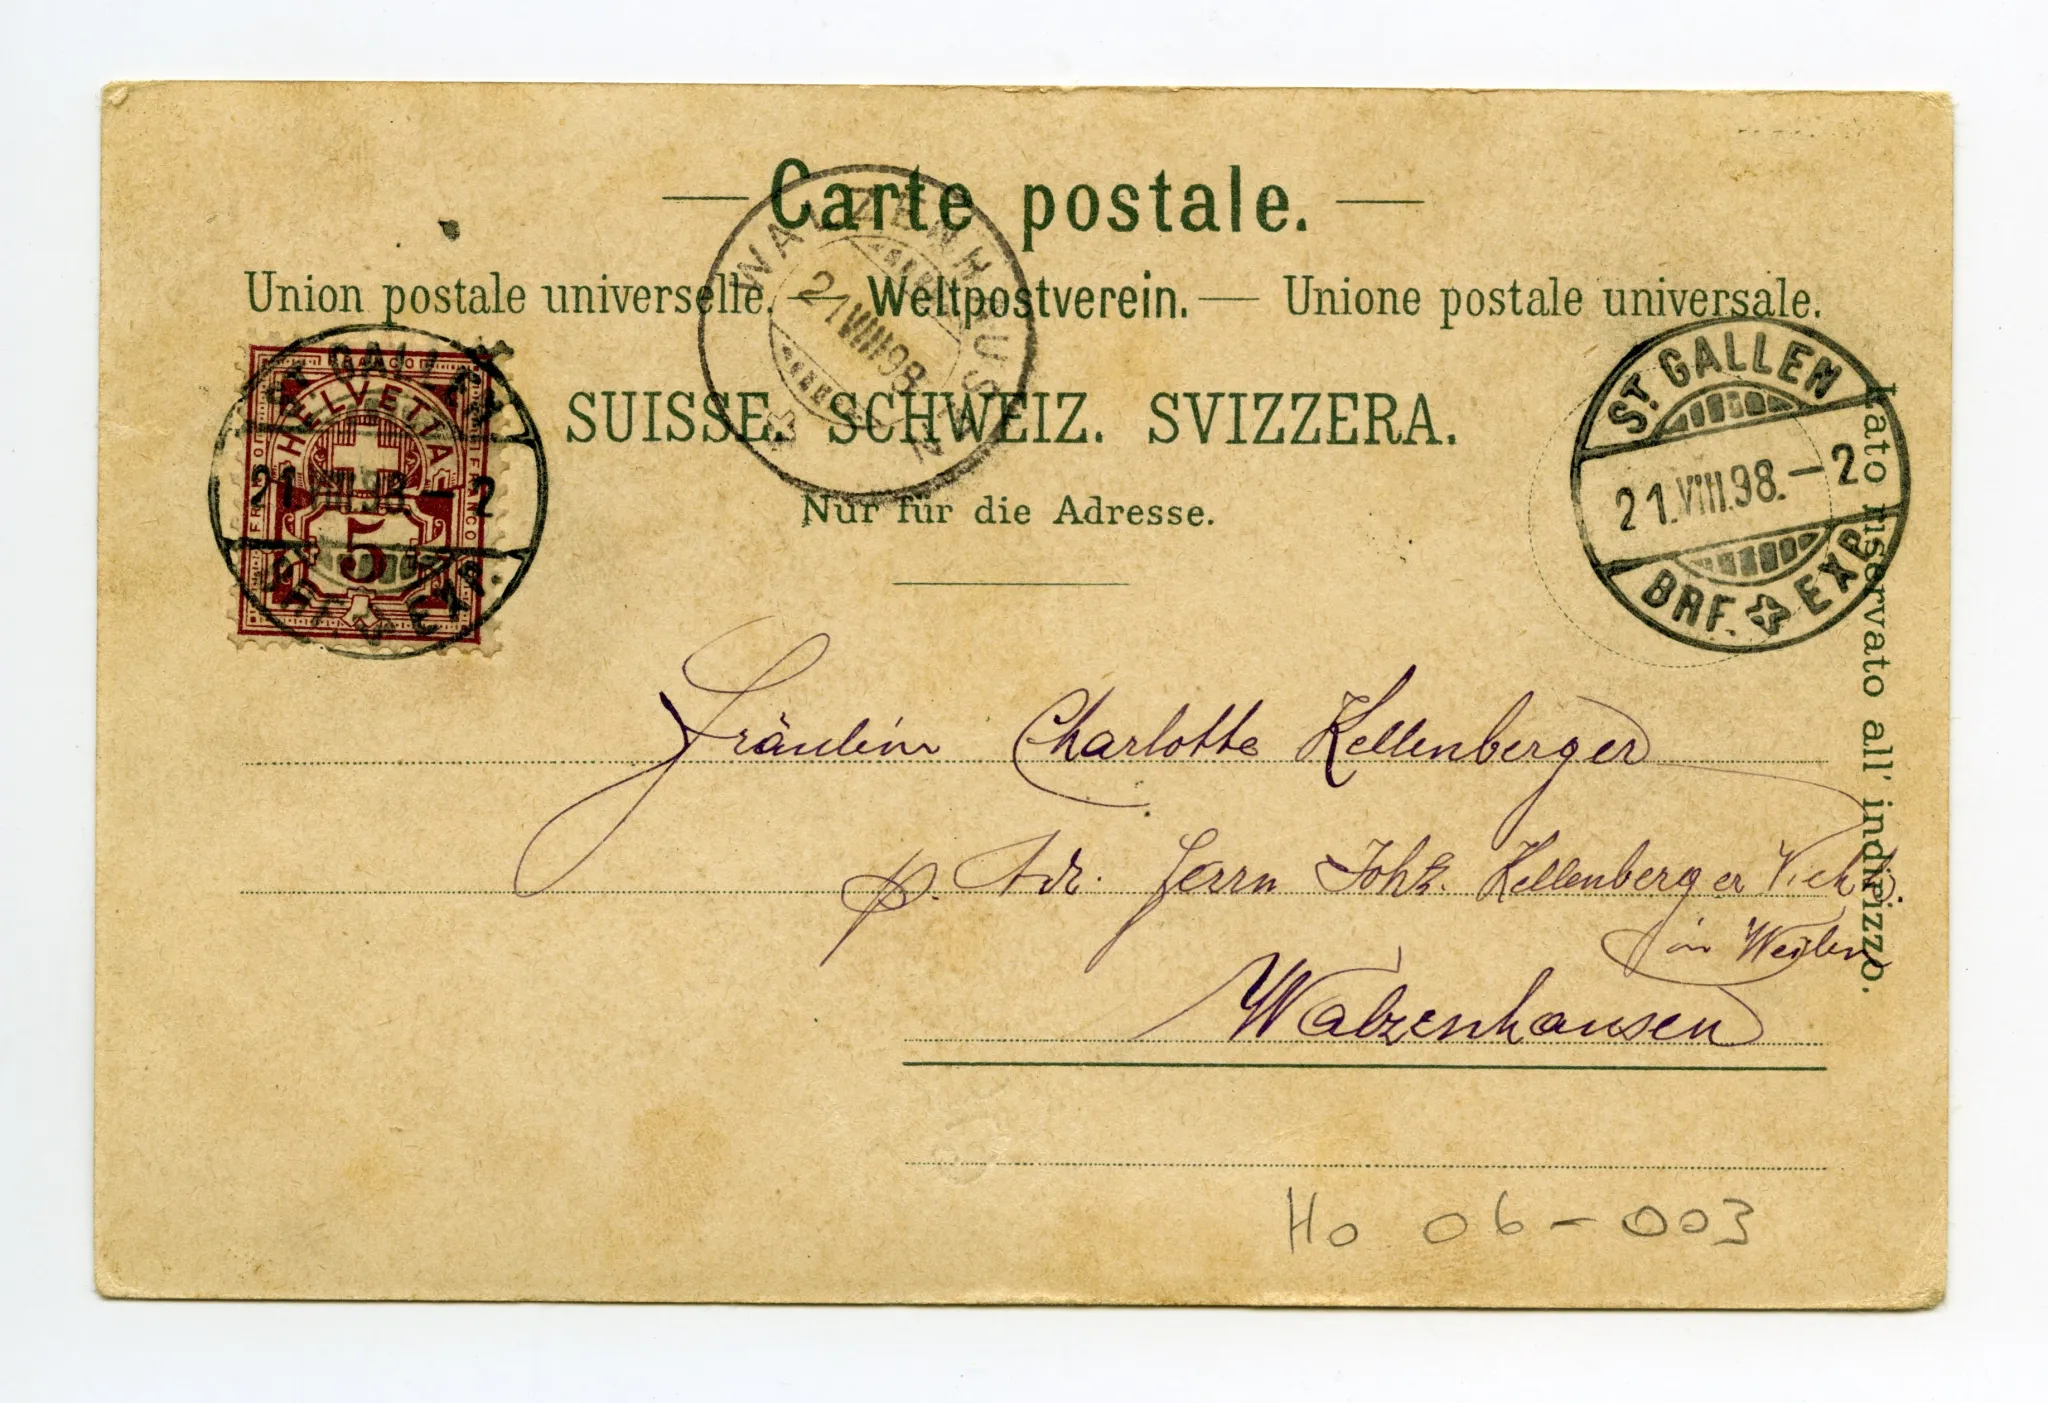 — Carte postale. —
Union postale universelle. — Weltpostverein. — Unione postale universale.
SUISSE. SCHWEIZ. SVIZZERA.
Nur für die Adresse.
Lato riservato all' indirizzo.
FRANCO
FRANCO
FRANCO
HELVETIA
5
ST. GALLEN
21.VIII.98.–2
BRF. EXP.
WALZENHAUSEN
21 VIII 98
ST. GALLEN
21.VIII.98.–2
BRF. EXP.
Fräulein Charlotte Kellenberger
p. Adr. Herrn Johs. Kellenberger
in
Walzenhausen
Ho 06-003